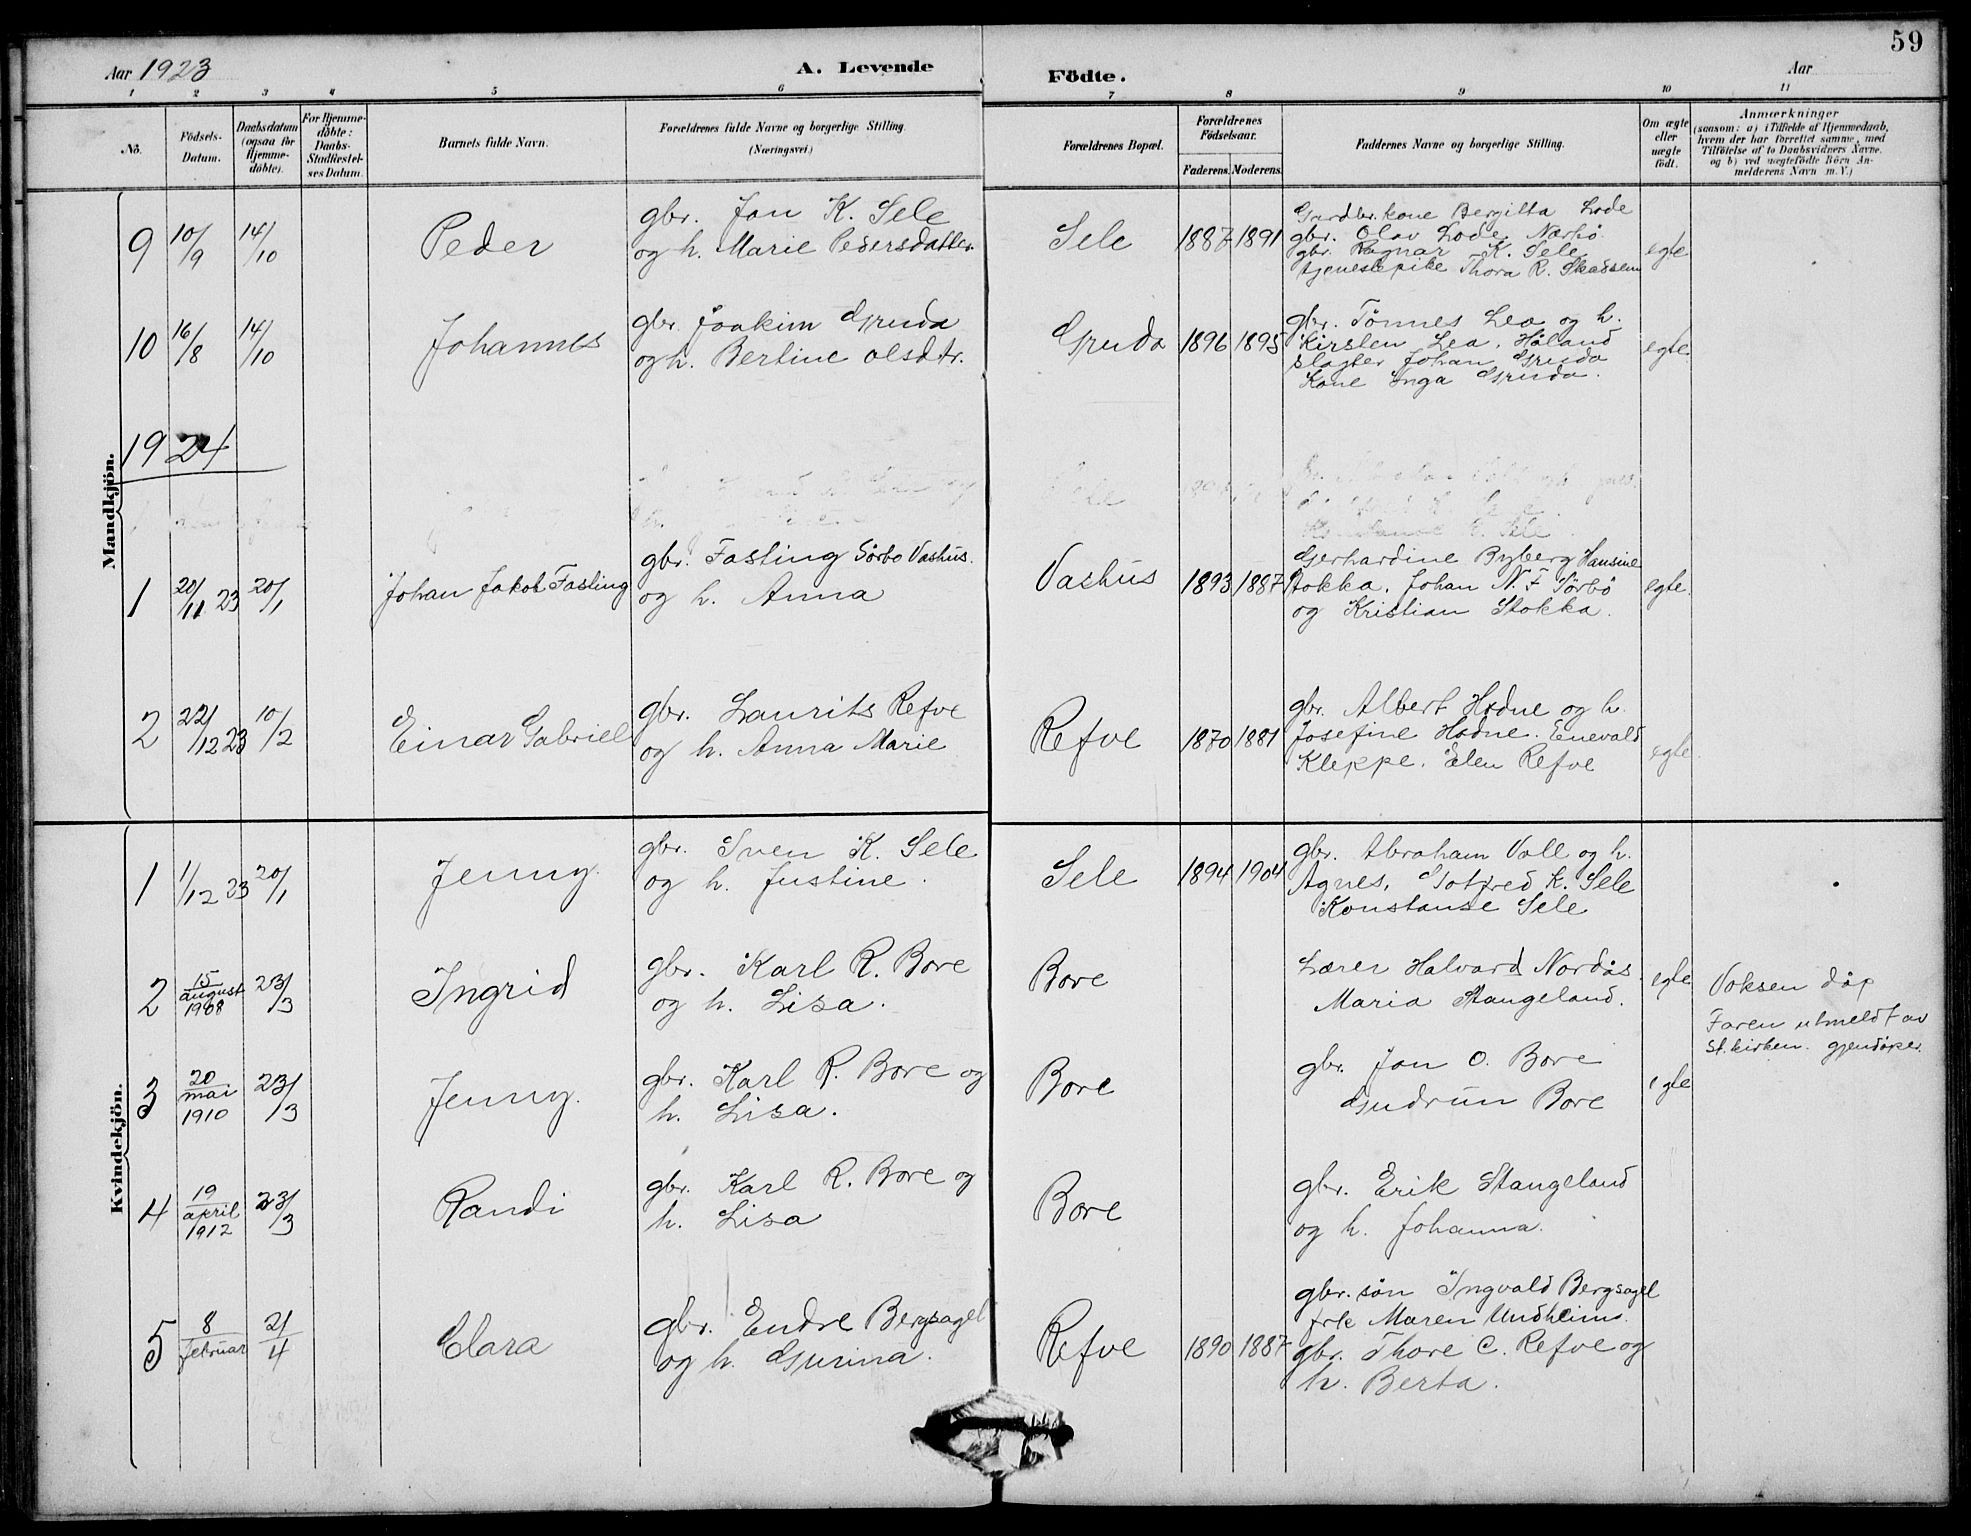 59
Aar 1923
A. Levende
Födte.
Aar
1 2 3 4 5 6 7 8 9 10 11
No.
Födsels-
Datum.
Daabsdatum
(ogsaa for
Hjemme-
döbte).
For Hjemme-
döbte:
Daabs-
Stadfæstel-
ses Datum.
Barnets fulde Navn.
Forældrenes fulde Navne og borgerlige Stilling.
(Næringsvei.)
Forældrenes Bopæl.
Forældrenes
Födselsaar.
Faderens. Moderens.
Faddernes Navne og borgerlige Stilling.
Om ægte
eller
uægte
födt.
Anmærkninger
(saasom: a) i Tilfælde af Hjemmedaab,
hvem der har forrettet samme, med
Tilföielse af to Daabsvidners Navne.
og b) ved uægtefödte Börn An-
melderens Navn m. V.)
Mandkjön.
9 10/9 14/10 Peder
gbr. Jon K. Sele
og h. Marie Pedersdatter
Sele 1887 1891
Gardbr. kone Bergitta Lode
gbr. Olav Lode. Nærbö
gbr. Ragnar K. Sele
tjenestepike Thora R. Skadsem
egte
10 16/8 14/10 Johannes
gbr. Joakim Gruda
og h. Bertine Olsdtr.
Gruda 1896 1895
gbr. Tönnes Lea og h.
Kirsten Lea, Håland
Slagter Johan Gruda
Kone Inga Gruda.
egte.
1924
Sele
1 20/11 23 20/1 Johan Jakob Fasting
gbr. Fasting Sörbo Vashus.
og h. Anna
Vashus 1893 1887
Gjerhardine Byberg Hansine
Stokka, Johan N. F Sörbö
og Kristian Stokka.
egte.
2 22/12 23 10/2 Einar Gabriel
gbr. Laurits Refve
og h. Anna Marie
Refve 1870 1881
gbr. Albert Hodne og h.
Josefine Hodne. Enevald
Kleppe. Elen Refve
egte.
Kvindekjön.
1 1/12 23 20/1 Jenny.
gbr. Sven K. Sele
og h. Justine.
Sele 1894 1904
gbr. Abraham Voll og h.
Agnes, Gotfred K. Sele
Konstanse Sele
2 15 august 1908 23/3 Ingrid
gbr. Karl R. Bore
og h. Lisa.
Bore
Lærer Halvard Nordås
Maria Stangeland.
egte
Voksen dåp
Faren utmeldt av
st.kirken. gjendöper.
3 20 mai 1910 23/3 Jenny.
gbr. Karl R. Bore og
h. Lisa.
Bore
gbr. Jon O. Bore
Gudrun Bore
egte
4 19 april 1912 23/3 Randi
gbr. Karl R. Bore og
h. Lisa
Bore
gbr. Erik Stangeland
og h. Johanna.
5 8 februar 21/4 Clara
gbr. Endre Bergsagel
og h. Gurina.
Refve 1890 1887
gbr. sön Ingvald Bergsagel
frk Maren Undheim.
gbr. Thore C. Refve og
h. Berta.